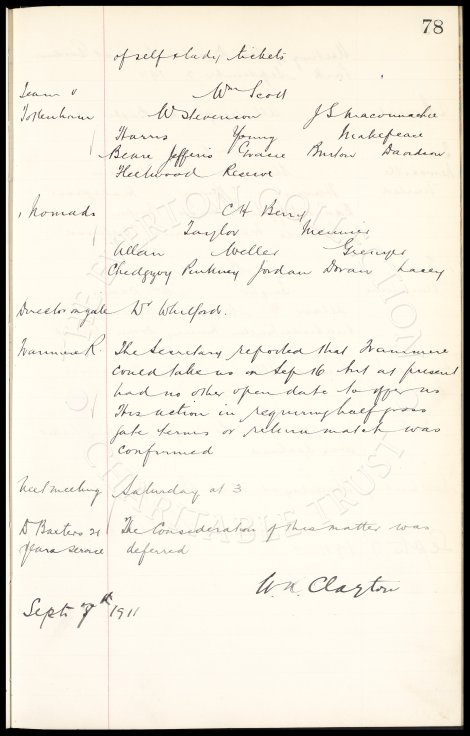 78
of self & lady tickets
Team v Wm Scott
Tottenham W Stevenson J S Maconnachie
Harris Young Makepeace
Beare Jefferis Gracie Burton Davidson
Fleetwood Reserve
" Nomads C H Berry
Taylor Meunier
Allan Weller Grenyer
Chedgzoy Pinkney Jordan Doran Lacey
Director agate Dr Whitford.
Tranmere R. The Secretary reported that Tranmere
could take us on Sep 16 but at present
had no other open date to offer us
His action in requiring half gross
gate terms or return match was
confirmed
Next meeting Saturday at 3
Dr Baxters 21 The Consideration of this matter was
years service deferred
W. R. Clayton
Sept 7th 1911
THE EVERTON COLLECTION
CHARITABLE TRUST